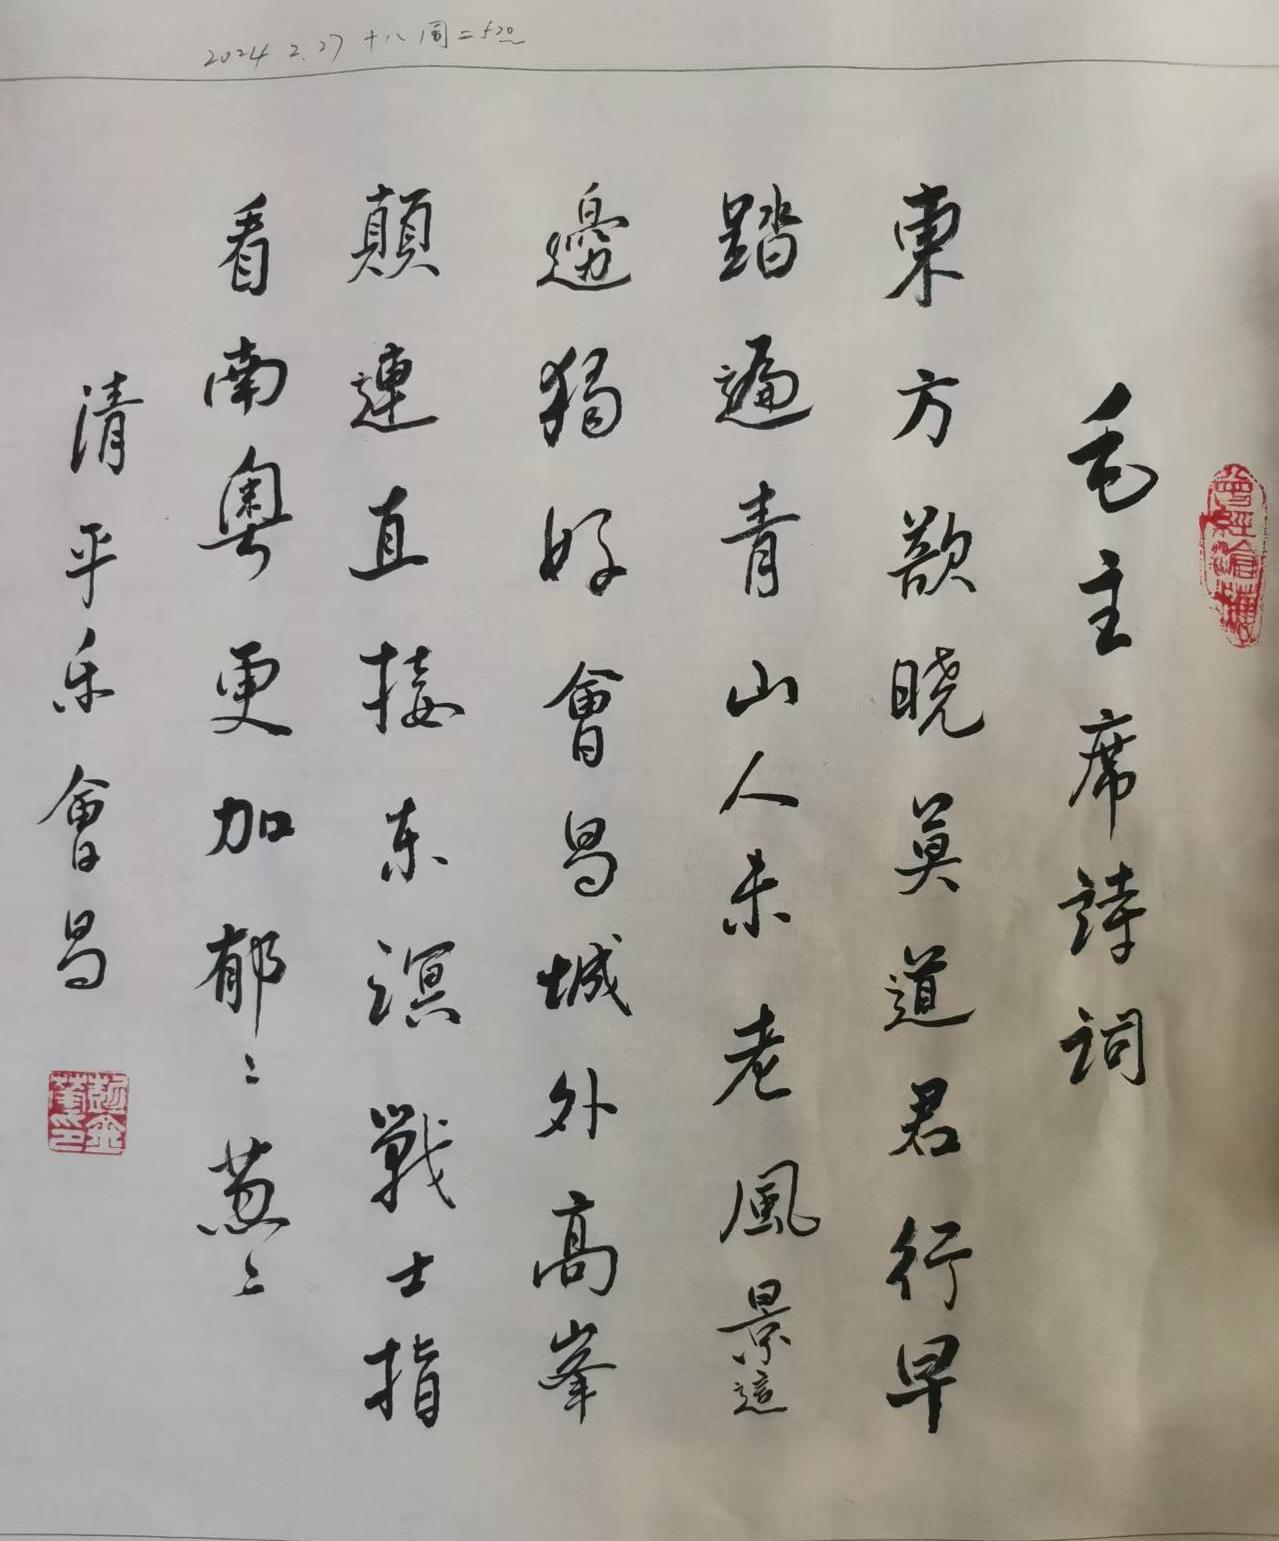 2024 2.27 十八 周二 520
毛主席詩詞
東方欲晓莫道君行早
踏遍青山人未老風景這
邊獨好會昌城外高峯
顛連直接东溟戰士指
看南粤更加郁〻葱〻
清平乐會昌
曾經滄海